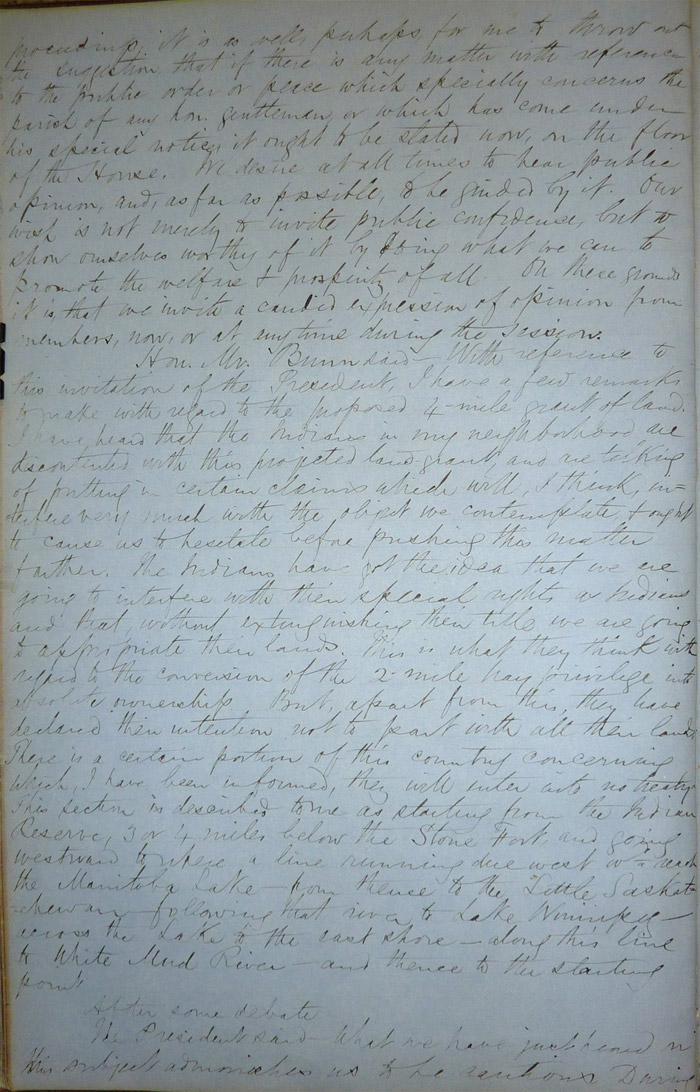 proceedings, it is as well, perhaps for me to throw out
the suggestion that if there is any matter with reference
to the public order or peace which specially concerns the
parish of any hon. gentleman, or which has come under
his special notice, it ought to be stated now, on the floor
of the House. We desire at all times to hear public
opinion, and, as far as possible, to be guided by it. Our
wish is not merely to invite public confidence, but to
show ourselves worthy of it by doing what we can to
promote the welfare & prosperity of all. On these grounds
it is that we invite a candid expression of opinion from
members, now, or at any time during the session.
Hon. Mr. Bunn said – With reference to
this invitation of the President, I have a few remarks
to make with regard to the proposed 4-mile grant of land.
I have heard that the Indians in my neighborhood are
discontented with this projected land grant, and are talking
of putting in certain claims which will, I think, in-
terfere very much with the object we contemplate, & ought
to cause us to hesitate before pushing this matter
farther. The Indians have got the idea that we are
going to interfere with their special rights as Indians
and that, without extinguishing their title we are going
to appropriate their lands. This is what they think with
regard to the conversion of the 2-mile hay privilege into
absolute ownership. But, apart from this, they have
declared their intention not to part with all their lands.
There is a certain portion of this country concerning
which, I have been informed, they will enter into no treaty.
This section is described to me as starting from the Indian
Reserve, 3 or 4 miles below the Stone Fort and going
westward to where a line running due west w– reach
the Manitoba Lake – from thence to the Little Saskat-
-chewan – following that river to Lake Winnipeg –
across the Lake to the east shore – along this line
to White Mud River – and thence to the starting
point
After some debate
The President said – What we have just heard on
this subject admonishes us to be cautious. During